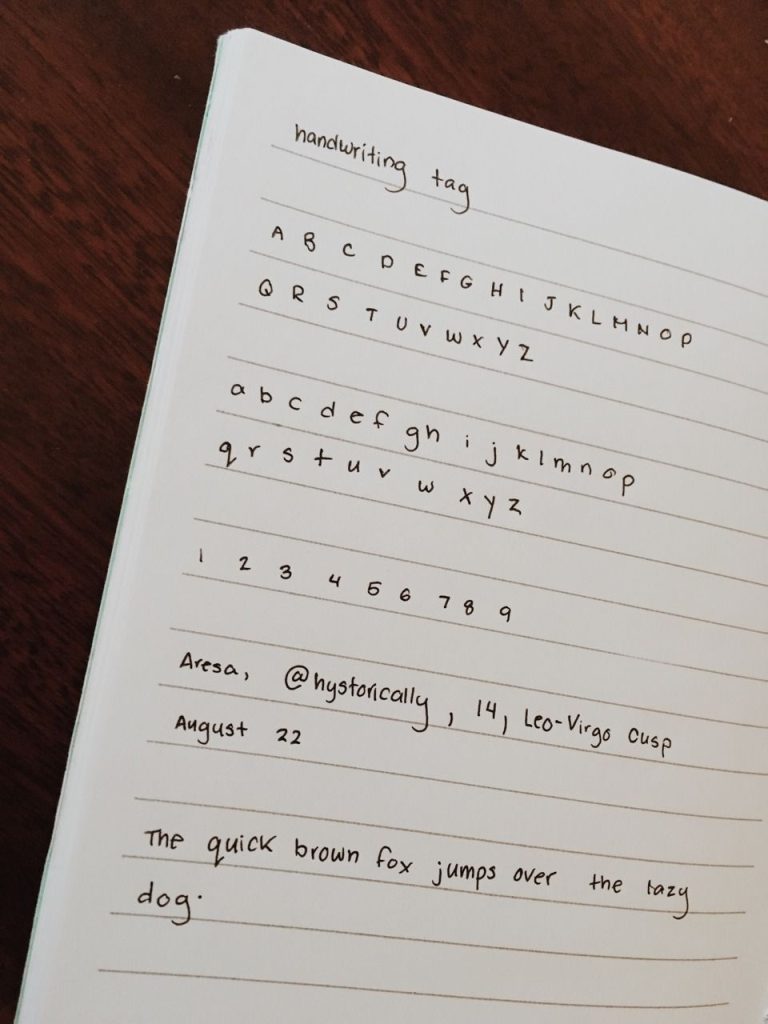 handwriting tag
A B C D E F G H I J K L M N O P
Q R S T U V W X Y Z
a b c d e f g h i j k l m n o p
q r s t u v w x y z
1 2 3 4 5 6 7 8 9
Aresa, @hystorically, 14, Leo-Virgo Cusp
August 22
The quick brown fox jumps over the lazy
dog.